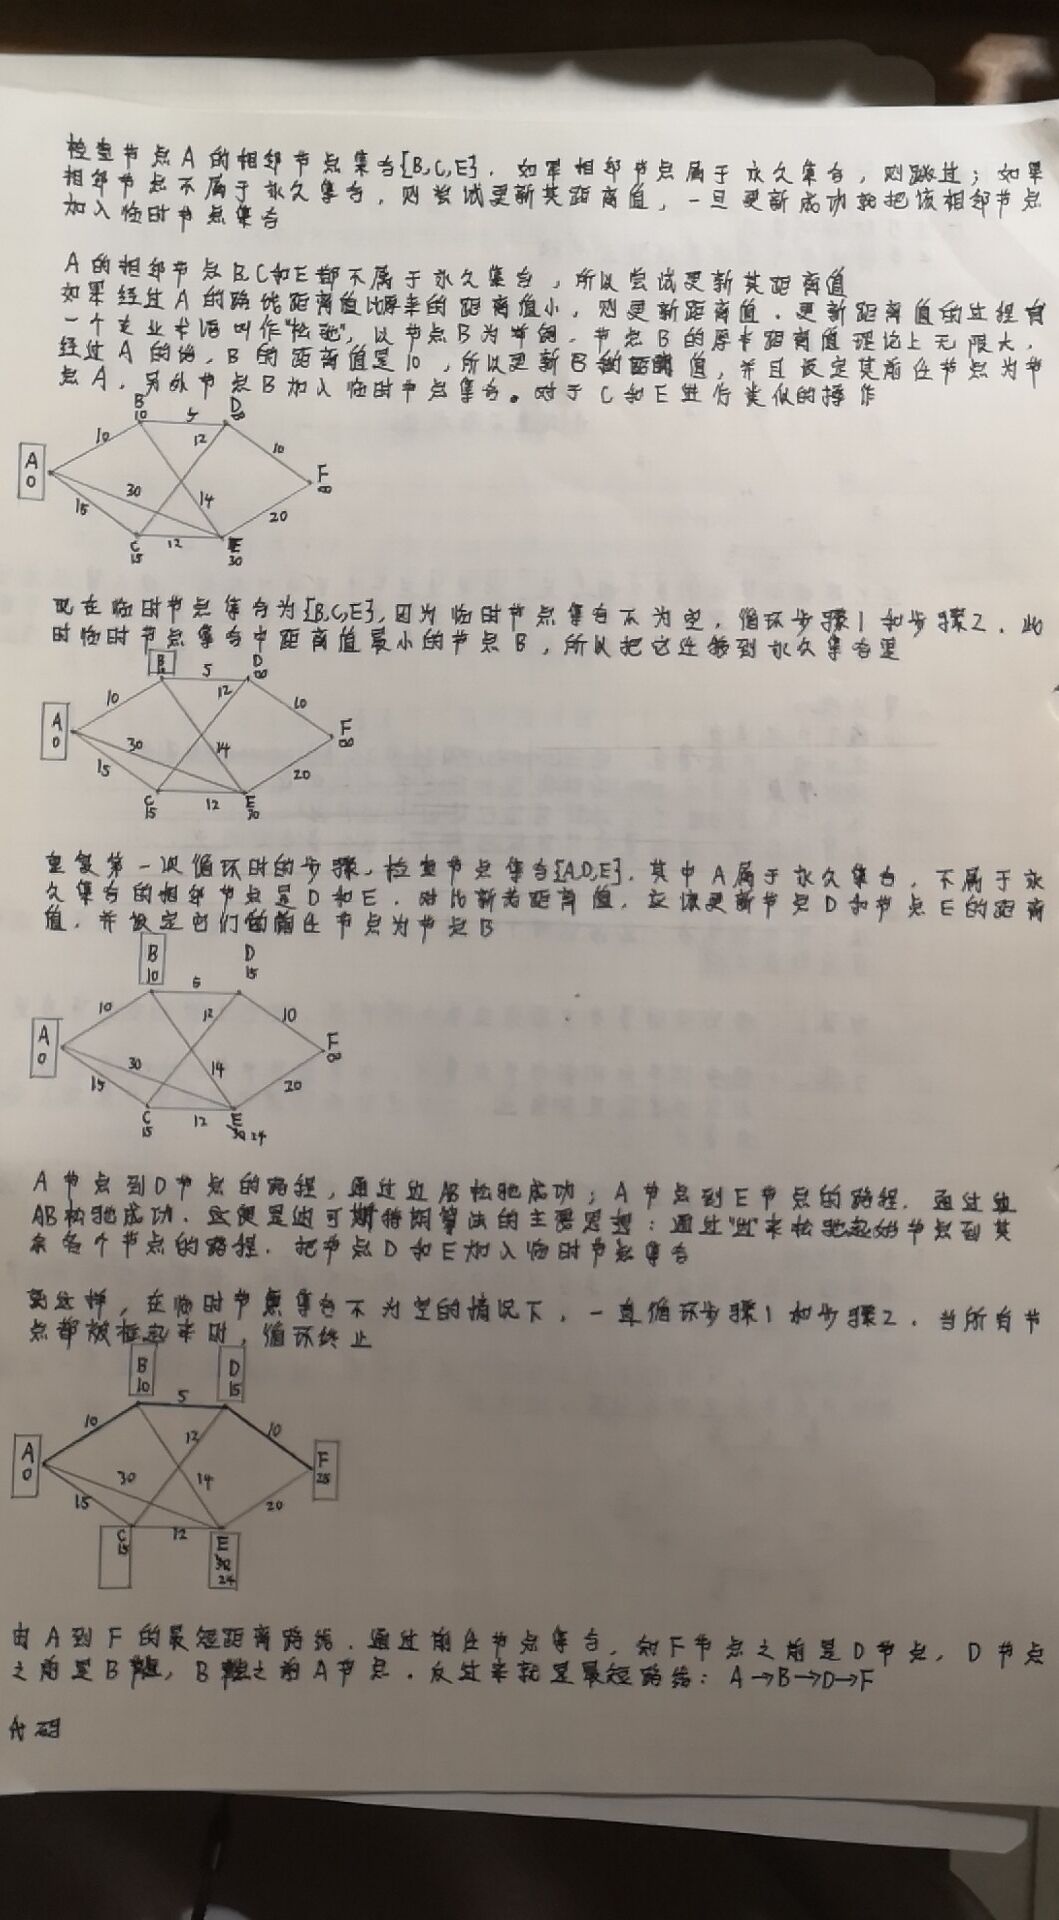 检查节点A的相邻节点集合{B,C,E}. 如果相邻节点属于永久集合, 则跳过; 如果
相邻节点不属于永久集合, 则尝试更新其距离值, 一旦更新成功就把该相邻节点
加入临时节点集合
A的相邻节点B,C和E都不属于永久集合, 所以尝试更新其距离值
如果经过A的路线距离值比原来的距离值小, 则更新距离值. 更新距离值的过程有
一个专业术语叫作"松弛", 以节点B为例, 节点B的原本距离值理论上无限大,
经过A的话, B的距离值是10, 所以更新B的距离值, 并且设定其前任节点为节
点A. 另外节点B加入临时节点集合。对于C和E进行类似的操作
B 10 5 D ∞
10 12 10
A 0 30 14 F ∞
15 20
C 15 12 E 30
现在临时节点集合为{B,C,E}, 因为临时节点集合不为空, 循环步骤1和步骤2. 此
时临时节点集合中距离值最小的节点B, 所以把它迁移到永久集合里
B 5 D ∞
10 12 10
A 0 30 14 F ∞
15 20
C 15 12 E 30
重复第一次循环时的步骤, 检查节点集合{A,D,E}. 其中A属于永久集合, 不属于永
久集合的相邻节点是D和E. 对比新老距离值, 应该更新节点D和节点E的距离
值, 并设定它们的前任节点为节点B
B 10 5 D 15
10 12 10
A 0 30 14 F ∞
15 20
C 15 12 E 30 24
A节点到D节点的路程, 通过边AB松弛成功; A节点到E节点的路程. 通过边
AB松弛成功. 这便是迪可斯特朗算法的主要思想: 通过"边"来松弛起始节点到其
余各个节点的路程. 把节点D和E加入临时节点集合
就这样, 在临时节点集合不为空的情况下, 一直循环步骤1和步骤2. 当所有节
点都被框起来时, 循环终止
B 10 5 D 15
10 12 10
A 0 30 14 F 25
15 20
C 15 12 E 30 24
由A到F的最短距离路线. 通过前任节点集合, 知F节点之前是D节点, D节点
之前是B, B之前A节点. 反过来就是最短路线: A→B→D→F